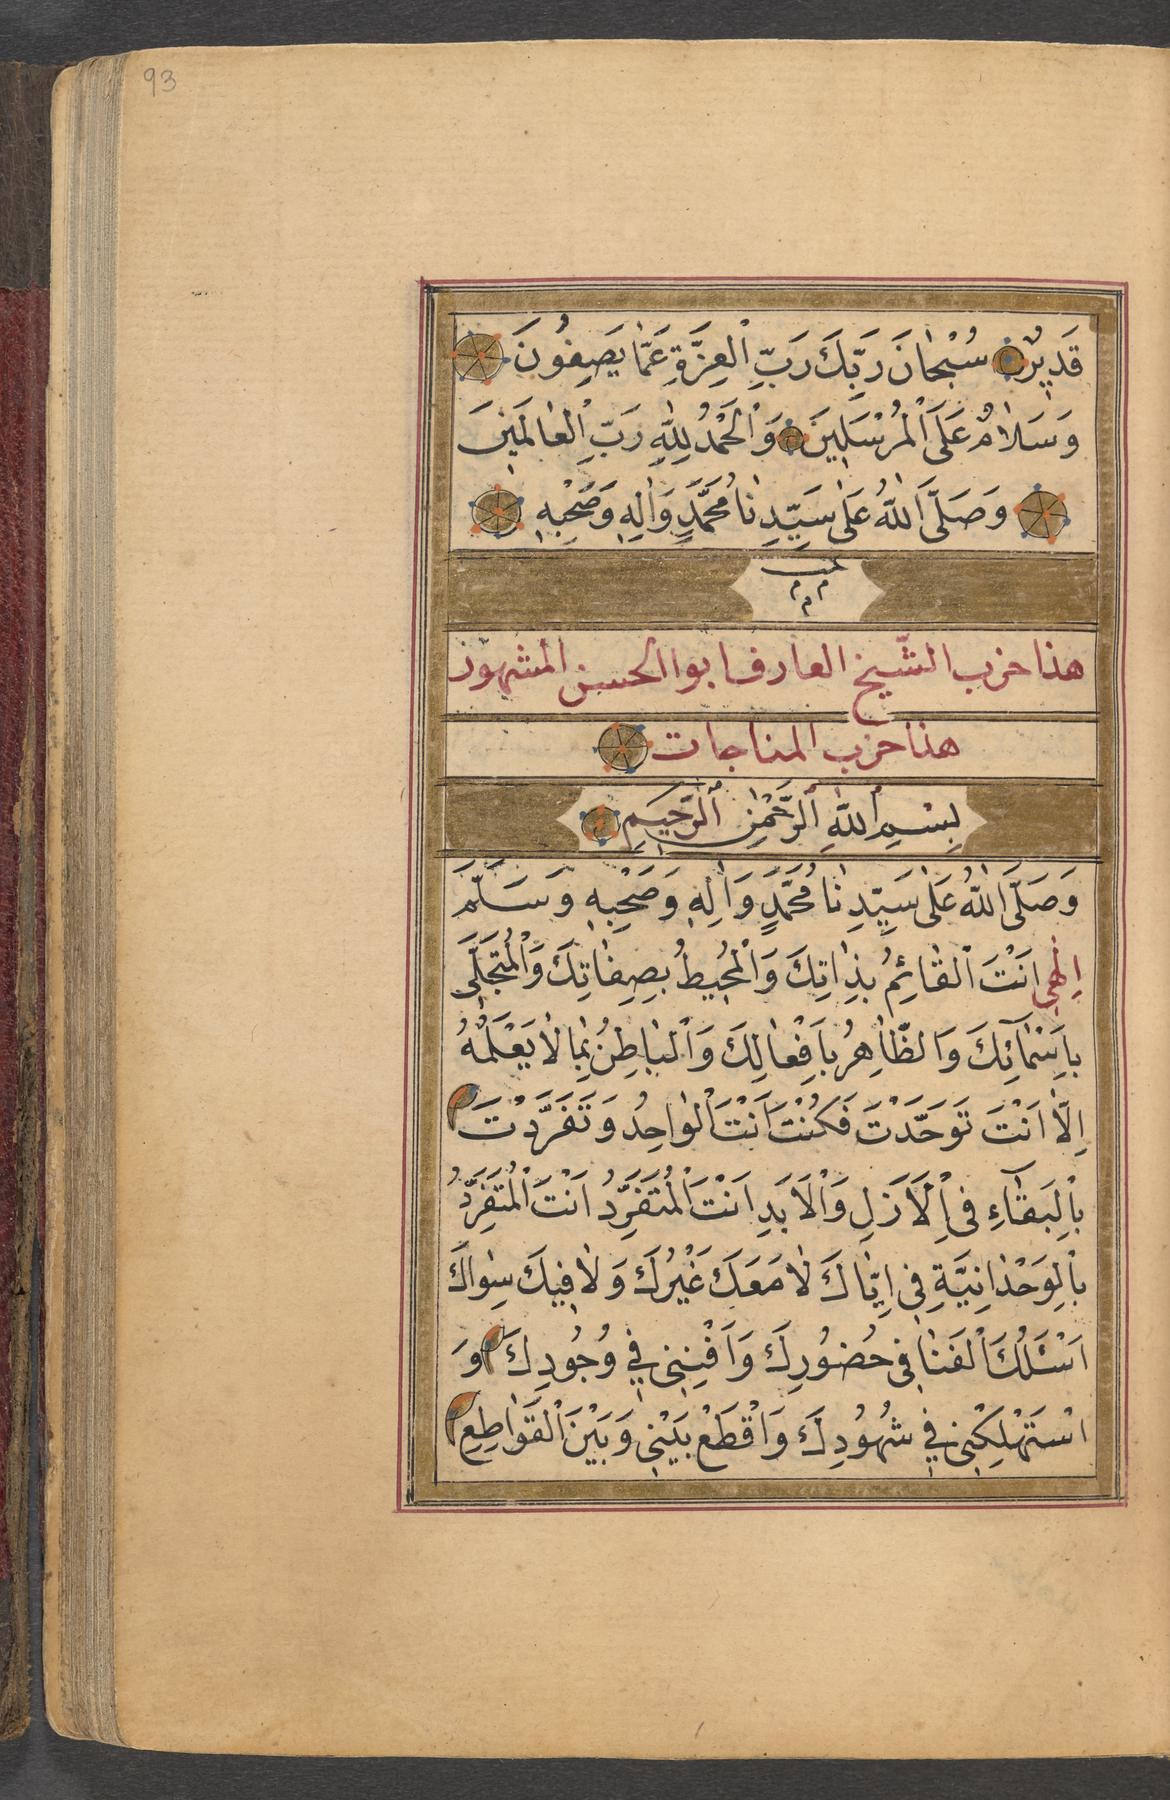 93
قَدِيرٌ سُبْحَانَ رَبِّكَ رَبِّ الْعِزَّةِ عَمَّا يَصِفُونَ
وَسَلَامٌ عَلَى الْمُرْسَلِينَ وَالْحَمْدُ لِلّٰهِ رَبِّ الْعَالَمِينَ
وَصَلَّى اللّٰهُ عَلَى سَيِّدِنَا مُحَمَّدٍ وَاٰلِهِ وَصَحْبِهِ
هذا حزب الشّيخ العارف ابوا الحسن المشهور
هذا حزب المناجات
بِسْمِ اللّٰهِ الرَّحْمٰنِ الرَّحِيمِ
وَصَلَّى اللّٰهُ عَلَى سَيِّدِنَا مُحَمَّدٍ وَاٰلِهِ وَصَحْبِهِ وَسَلَّمَ
اِلٰهِى اَنْتَ الْقَائِمُ بِذَاتِكَ وَالْمُحِيطُ بِصِفَاتِكَ وَالْمُتَجَلِّى
بِاَسْمَآئِكَ وَالظَّاهِرُ بِاَفْعَالِكَ وَالْبَاطِنُ بِمَا لَا يَعْلَمُهُ
اِلَّا اَنْتَ تَوَحَّدْتَ فَكُنْتَ اَنْتَ الْوَاحِدُ وَتَفَرَّدْتَ
بِالْبَقَآءِ فِى الْاَزَلِ وَالْاَبَدِ اَنْتَ الْمُتَفَرِّدُ اَنْتَ الْمُتَفَرِّدُ
بِالْوَحْدَانِيَّةِ فِى اِيَّاكَ لَا مَعَكَ غَيْرُكَ وَلَا فِيكَ سِوَاكَ
اَسْئَلُكَ الْفَنَا فِى حُضُورِكَ وَاَفْنِنِى فِى وُجُودِكَ وَ
اسْتَهْلِكْنِى فِى شُهُودِكَ وَاقْطَعْ بَيْنِى وَبَيْنَ الْقَوَاطِعِ